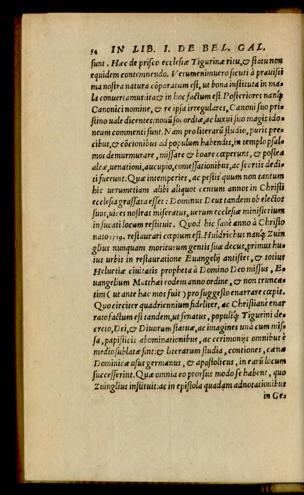 54 IN LIB. I. DE BEL. GAL.
sunt. Hæc de prisco ecclesiæ Tigurinæ ritu, & statu non
equidem contemnendo. Verumenimuero sicuti à prauis si
ma nostra natura cōparatum est, ut bona instituta in ma
la conuertamus: ita & in hac factum est. Posteriores nanq;
Canonici nomine, & re ipsa irregulares, Canoni suo pri-
stino uale dicentes: nouū ordiæ, ac luxui suo magis ido-
neum commenti sunt. Nam pro literarū studio, purit pre-
cibus, & cōcionibus ad populum habendis, in templo psal-
mos demurmurare, missare & boare cœperunt, & postea
aleæ, uenationi, aucupio, comessationibus, ac scortis dedi-
ti fuerunt. Quæ intemperies, ac pestis quum non tantum
hic uerumetiam alibi aliquot centum annos in Christi
ecclesia grassata esset: Dominus Deus tandem ob electos
suos, uices nostras miseratus, uerum ecclesiæ ministerium
in suum locum restituit. Quod hic sanè anno à Christo
nato 1519. restaurari cœptum est. Huldrichus nanq; Zuin
glius nunquam moriturum gentis suæ decus, primus hu-
ius urbis in restauratione Euangelij antistes, & totius
Helueticæ ciuitatis propheta à Domino Deo missus, E-
uangelium Matthæi eodem anno ordine, & non trunca-
tim (ut ante hac mos fuit) pro suggesto enarrare cœpit.
Quo circiter quadriennium fideliter, ac Christianè enar
rato factum est tandem, ut senatus, populusq; Tigurini de-
creto, Dei, & Diuorum statuæ, ac imagines unà cum mis-
sa, papisticis abominationibus, ac cerimonijs omnibus è
medio sublatæ sint: & literarum studia, contiones, cœna
Dominicæ usus germanus, & apostolicus, in earū locum
successerint. Quæ omnia eo prorsus modo se habent, quo
Zuinglius instituit: ac in epistola quadam adnotationibus
in Ge-